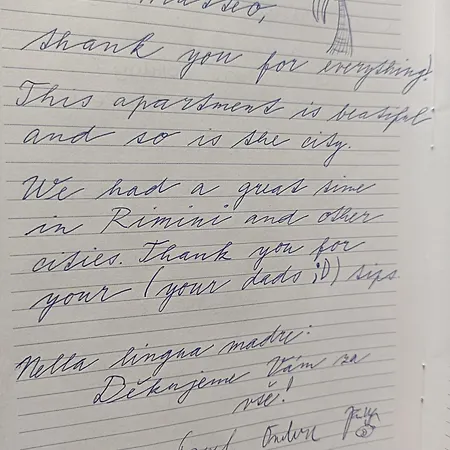 thank you for everything!
This apartment is beatiful
and so is the city.
We had a great time
in Rimini and other
cities. Thank you for
your (your dads ;D) tips
Nella lingua madre:
Děkujeme Vám za
vše!